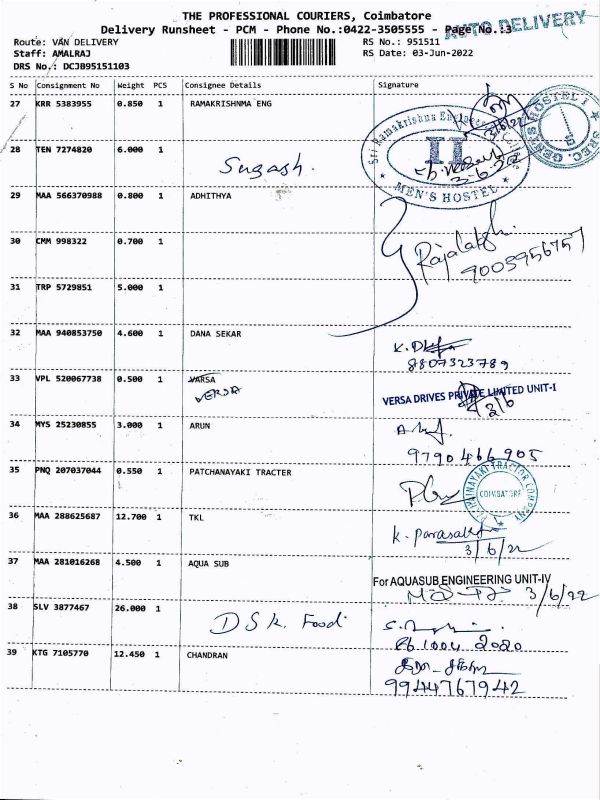 THE PROFESSIONAL COURIERS, Coimbatore
AUTO DELIVERY
Delivery Runsheet - PCM - Phone No.:0422-3505555 - Page No.:3
Route: VAN DELIVERY RS No.: 951511
Staff: AMALRAJ RS Date: 03-Jun-2022
DRS No.: DCJB95151103
S No Consignment No Weight PCS Consignee Details Signature
27 KRR 5383955 0.850 1 RAMAKRISHNMA ENG
Sri Ramakrishna
II
MEN'S HOSTEL
HOSTEL I
SREC
28 TEN 7274820 6.000 1 Sugash.
3-6-22
29 MAA 566370988 0.800 1 ADHITHYA
30 CMM 998322 0.700 1 Rajalaksh.
9005956757
31 TRP 5729851 5.000 1
32 MAA 940853750 4.600 1 DANA SEKAR
8807323789
33 VPL 520067738 0.500 1 VARSA
VERSA DRIVES PRIVATE LIMITED UNIT-I
3/6
34 MYS 25230855 3.000 1 ARUN
9790466905
35 PNQ 207037044 0.550 1 PATCHANAYAKI TRACTER
COIMBATORE
36 MAA 288625687 12.700 1 TKL
3/6/22
37 MAA 281016268 4.500 1 AQUA SUB
For AQUASUB ENGINEERING UNIT-IV
3/6/22
38 SLV 3877467 26.000 1 DSK. Food
39 KTG 7105770 12.450 1 CHANDRAN
9944767942